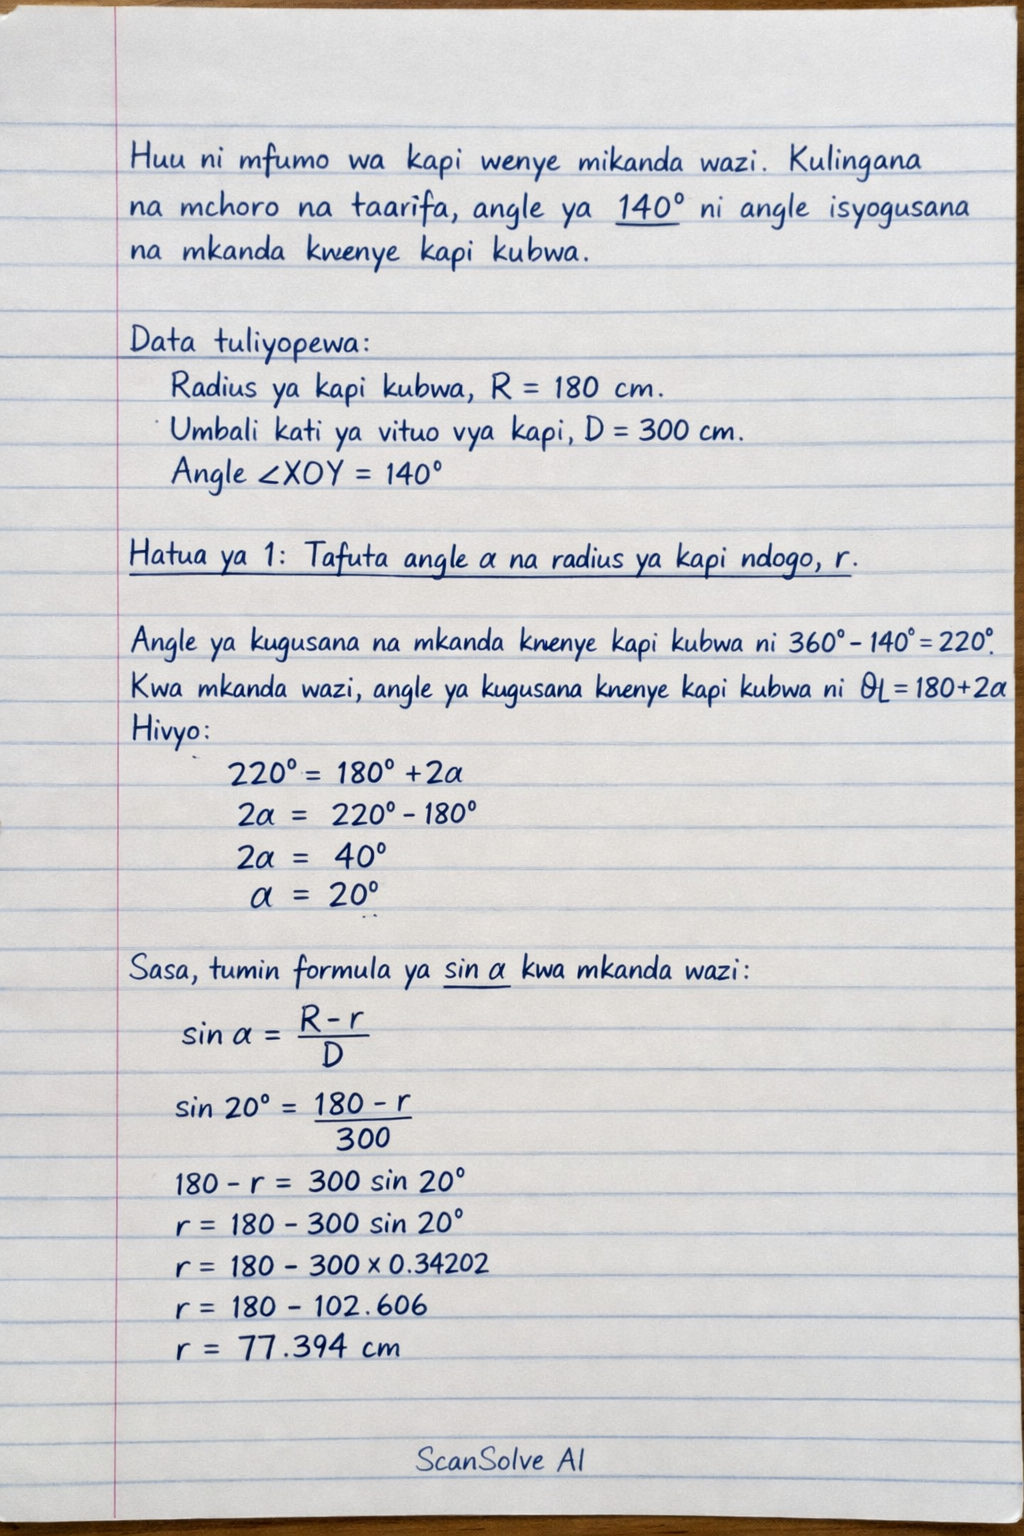 Huu ni mfumo wa kapi wenye mikanda wazi. Kulingana
na mchoro na taarifa, angle ya 140° ni angle isyogusana
na mkanda kwenye kapi kubwa.
Data tuliyopewa:
Radius ya kapi kubwa, R = 180 cm.
Umbali kati ya vituo vya kapi, D = 300 cm.
Angle ∠XOY = 140°
Hatua ya 1: Tafuta angle α na radius ya kapi ndogo, r.
Angle ya kugusana na mkanda knenye kapi kubwa ni 360° - 140° = 220°.
Kwa mkanda wazi, angle ya kugusana knenye kapi kubwa ni θL = 180 + 2α
Hivyo:
220° = 180° + 2α
2α = 220° - 180°
2α = 40°
α = 20°
Sasa, tumin formula ya sin α kwa mkanda wazi:
sin α = (R - r) / D
sin 20° = (180 - r) / 300
180 - r = 300 sin 20°
r = 180 - 300 sin 20°
r = 180 - 300 × 0.34202
r = 180 - 102.606
r = 77.394 cm
ScanSolve AI